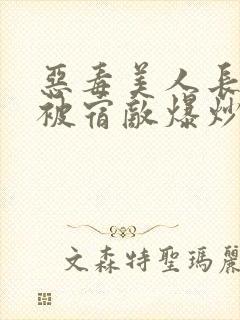 惡毒美人長
被宿敵爆炒
文森特聖瑪麗